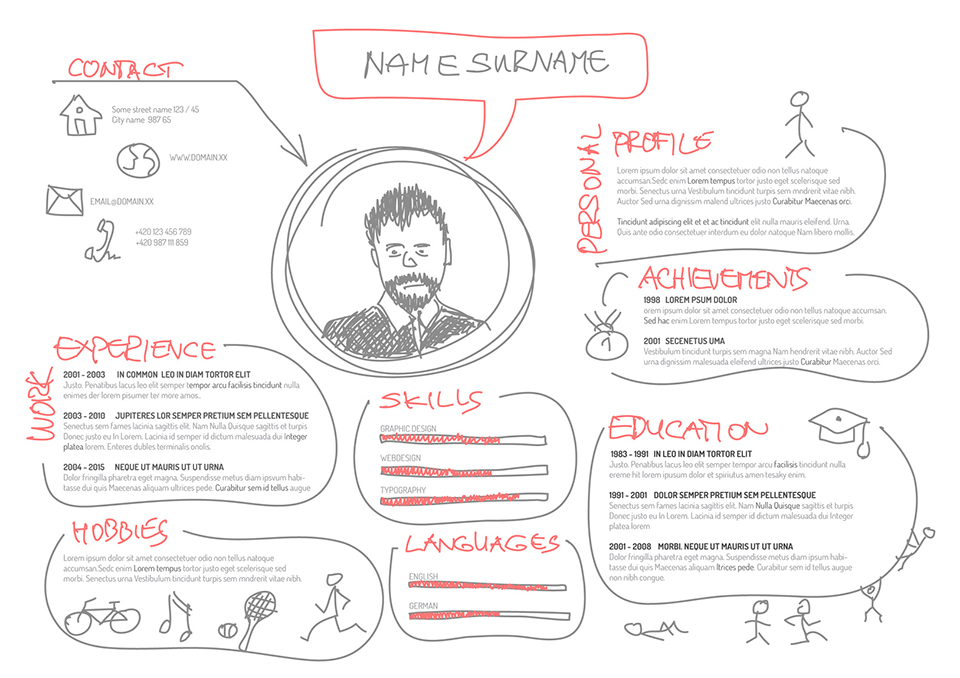 NAME SURNAME
CONTACT
Some street name 123 / 45
City name 987 65
WWW.DOMAIN.XX
EMAIL@DOMAIN.XX
+420 123 456 789
+420 987 111 859
PERSONAL
PROFILE
Lorem ipsum dolor et amet consectetuer odio non tellus natoque
accumsan.Sedc enim Lorem tempus tortor justo eget scelerisque sed
morbi. Senectus urna Vestibulum tincidunt turpis sem mndrerit vitae nibh.
Auctor Sed urna dignissim malend ultrices justo Curabitur Maecenas orci.
Tincidunt adipiscing elit et et ac tincidunt elit nulla mauris eleifend. Urna.
Quis ante odio consectetuer interdum eu dolor natoque Nam libero mollis.
ACHIEVEMENTS
1998 LOREM PSUM DOLOR
orem ipsum dolor sit amet consectetuer odio non tellus natoque accumsan.
Sed hac enim Lorem tempus tortor justo eget scelerisque sed morbi.
2001 SECENETUS UMA
Vestibulum tincidunt turpis sem magna Nam hendrerit vitae nibh. Auctor
Sed urna dignissim malesuada ultrices justo Curabitur Maecenas orci.
WORK
EXPERIENCE
2001 - 2003 IN COMMON LEO IN DIAM TORTOR ELIT
Justo. Penatibus lacus leo elit semper tempor arcu facilisis tincidunt nulla
enimes der lorem pisumer ter more amos..
2003 - 2010 JUPITERES LOR SEMPER PRETIUM SEM PELLENTESQUE
Senectus sem fames sagittis elit. Nam Nulla Quisque sagittis et turpis
Donec justo eu In Lorem. Lacinia id semper dictum malesuada dui Integer
platea lorem. Enteres dubles terminalis onolis.
2004 - 2015 NEQUE UT MAURIS UT UT URNA
Dolor fringilla pharetra eget magna. Suspendisse interdum vivamus habi-
tasse dui quis Maecenas aliquam ultrices pede. Curabitur sem id tellus augue
SKILLS
GRAPHIC DESIGN
WEBDESIGN
TYPOGRAPHY
EDUCATION
1983 - 1991 IN LEO IN DIAM TORTOR ELIT
Justo. Penatibus lacus leo elit semper tempor arcu facilisis tincidunt nulla
ereme hit lorem ipusum dolor et spiriutus amen tesaky enim.
1991 - 2001 DOLOR SEMPER PRETIUM SEM PELLENTESQUE
Senectus sem fames sagittis elit. Nam Nulla Quisque sagittis et turpis
Donec justo eu In Lorem. Lacinia id semper dictum malesuada dui Integer
platea lorem
2001 - 2008 MORBI. NEQUE UT MAURIS UT UT URNA
Dolor fringilla pharetra eget magna. Suspendisse interdum vivamus habi-
tasse dui quis Maecenas aliquam ltrices pede. Curabitur sem id tellus augue
non nibh congue.
HOBBIES
Lorem ipsum dolor sit amet consectetuer odio non tellus natoque
accumsan.Sedc enim Lorem tempus tortor justo eget scelerisque sed
morbi. Senectus urna Vestibulum tincidunt turpis sem vitae nibh.
LANGUAGES
ENGLISH
GERMAN